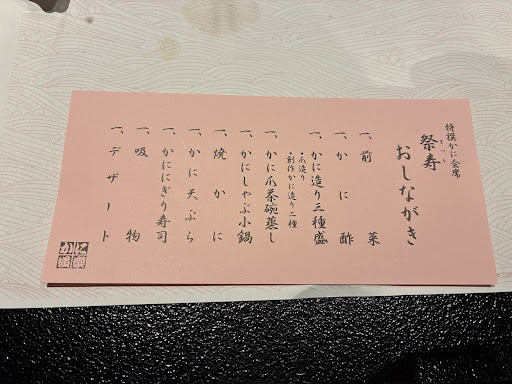 特撰かに会席
祭寿
まつり
おしながき
一、前菜
一、かに酢
一、かに造り三種盛
・爪造り
・創作かに造り二種
一、かに爪茶碗蒸し
一、かにしゃぶ小鍋
一、焼かに
一、かに天ぷら
一、かににぎり寿司
一、吸物
一、デザート